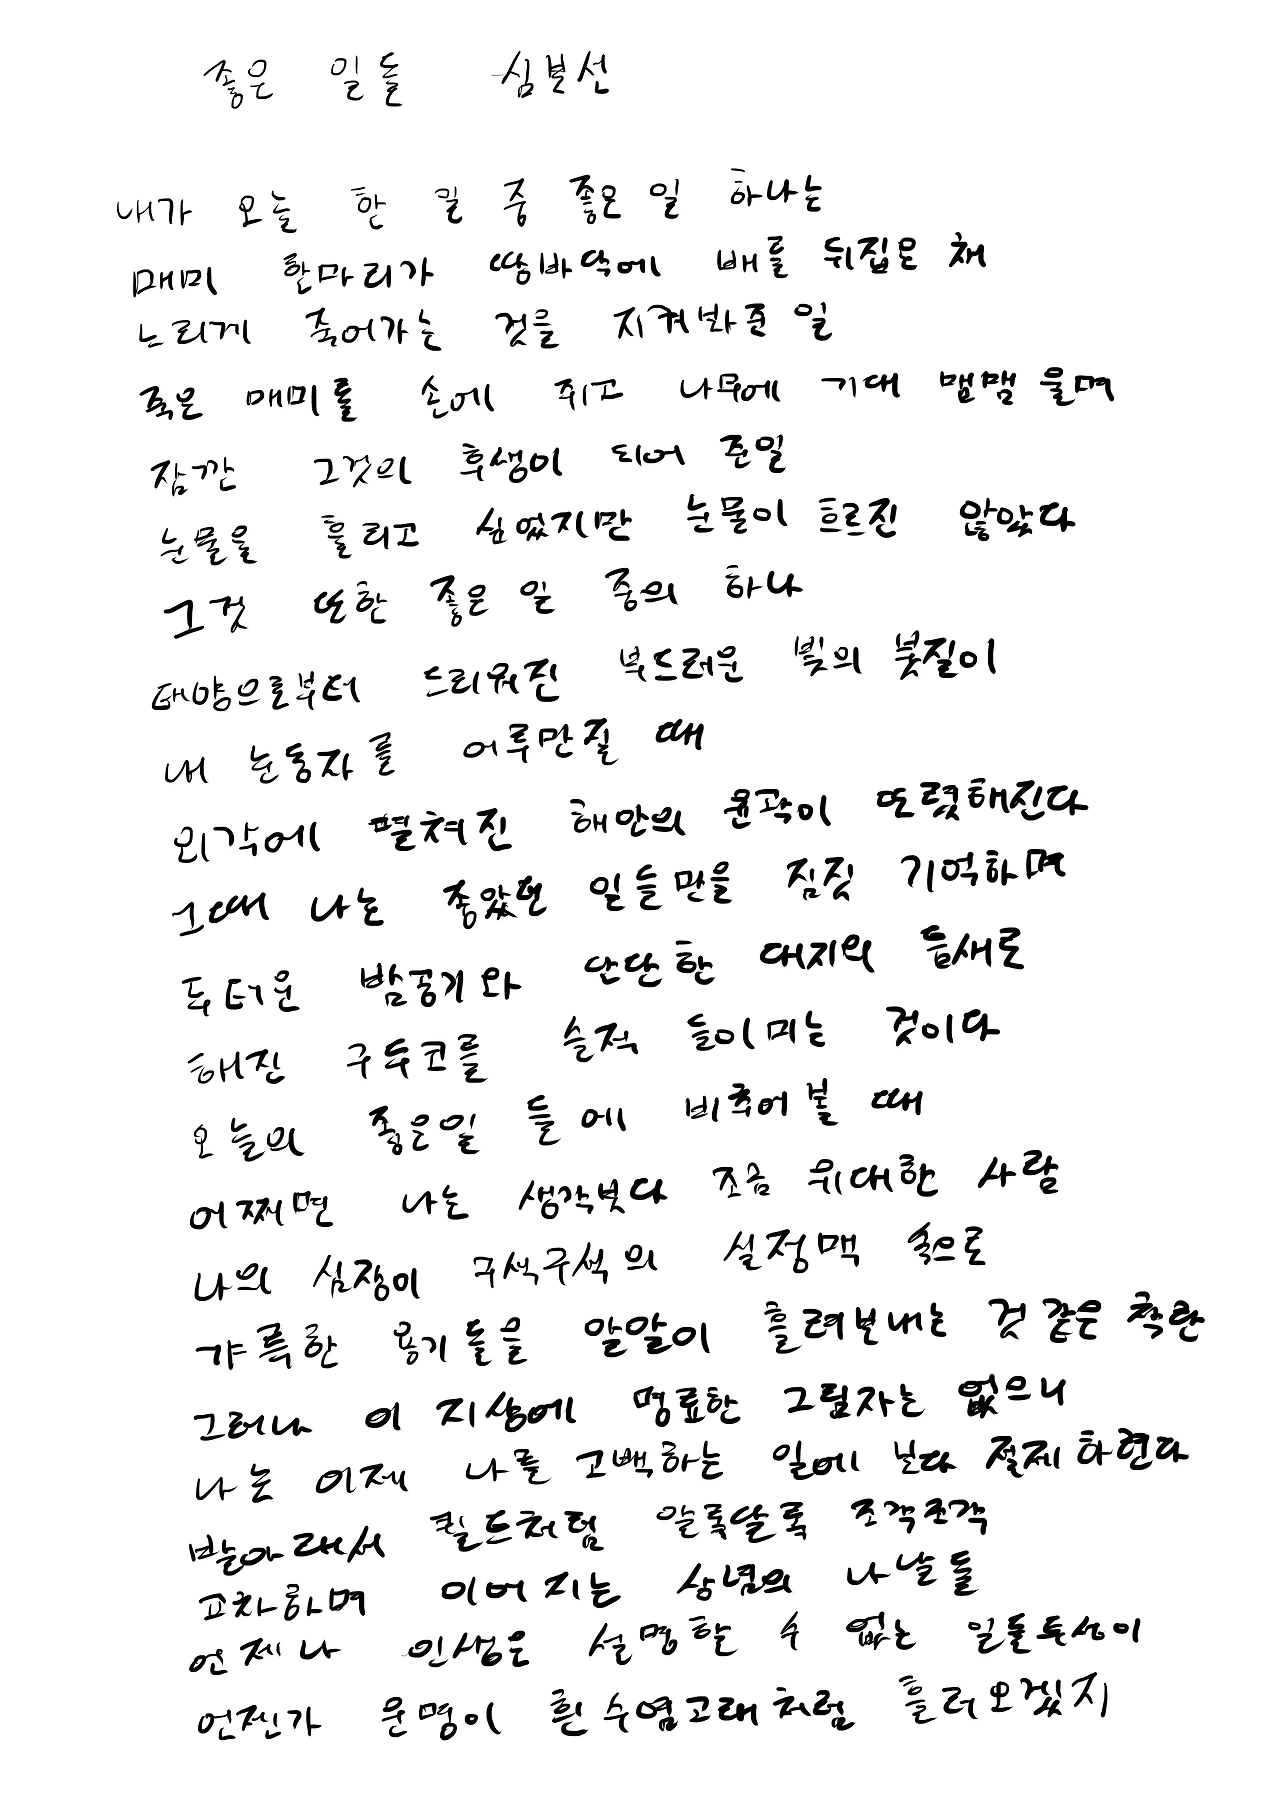 좋은 일들 심보선
내가 오늘 한 일 중 좋은 일 하나는
매미 한마리가 땅바닥에 배를 뒤집은 채
느리게 죽어가는 것을 지켜봐준 일
죽은 매미를 손에 쥐고 나무에 기대 맴맴 울며
잠깐 그것의 후생이 되어 준일
눈물을 흘리고 싶었지만 눈물이 흐르진 않았다
그것 또한 좋은 일 중의 하나
태양으로부터 드리워진 부드러운 빛의 붓질이
내 눈동자를 어루만질 때
외각에 펼쳐진 해안의 윤곽이 또렷해진다
그때 나는 좋았던 일들만을 짐짓 기억하며
두터운 밤공기와 단단한 대지의 틈새로
해진 구두코를 슬적 들이미는 것이다
오늘의 좋은일 들에 비추어볼 때
어쩌면 나는 생각붓다 조금 위대한 사람
나의 심장이 구석구석의 실정맥 속으로
갸륵한 용기들을 알알이 흘려보내는 것 같은 착란
그러나 이 지상에 명료한 그림자는 없으니
나는 이제 나를 고백하는 일에 보다 절제하련다
발아래서 퀼트처럼 알록달록 조각조각
교차하며 이어지는 상념의 나날들
언제나 인생은 설명할 수 없는 일들투성이
언젠가 운명이 흰수염고래처럼 흘러오겠지